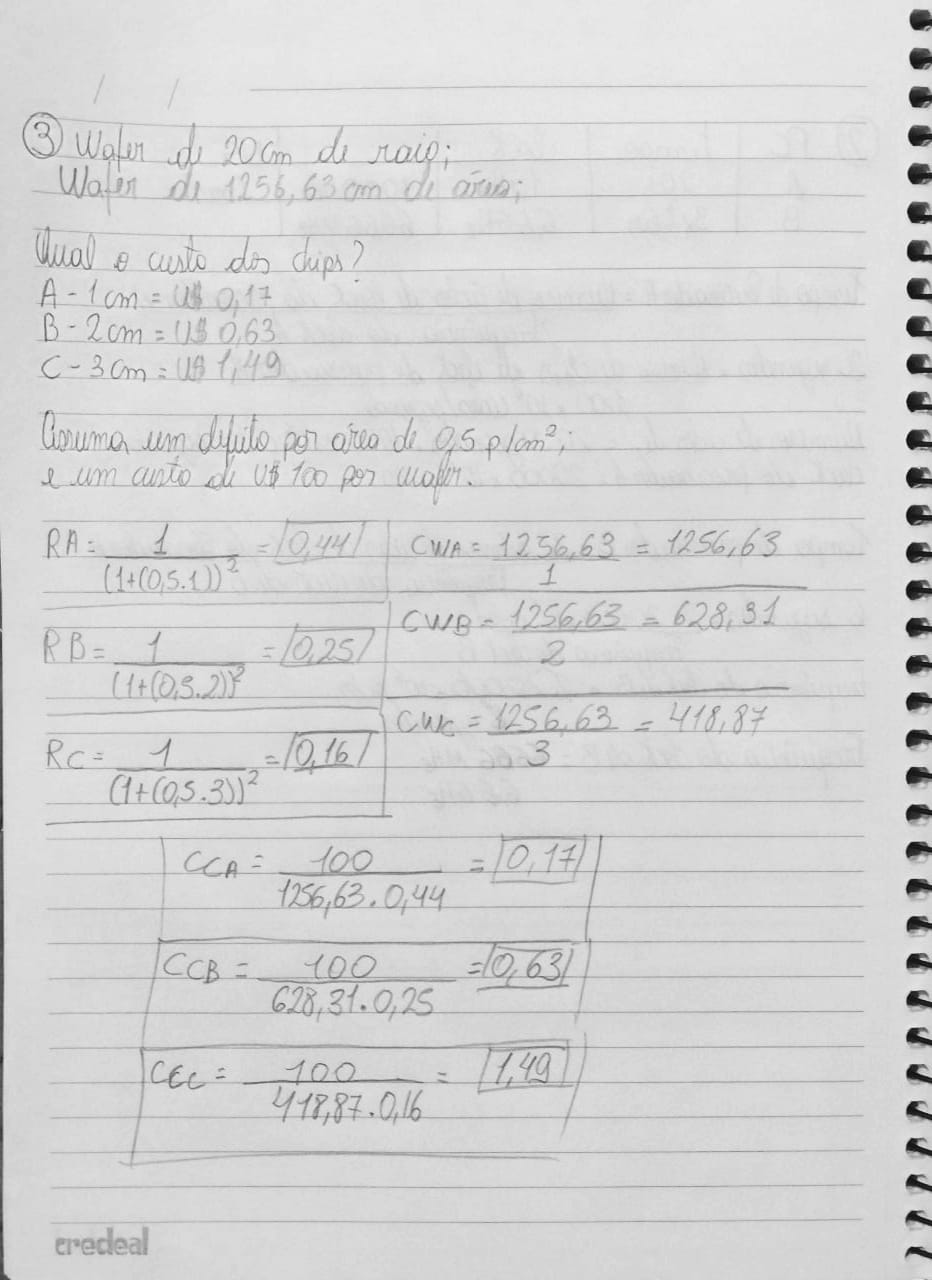 ③ Wafer de 20cm de raio;
Wafer de 1256,63cm de área;
Qual o custo dos chips?
A - 1cm = U$ 0,17
B - 2cm = U$ 0,63
C - 3cm = U$ 1,49
Assuma um defeito por área de 0,5 p/cm²;
e um custo de U$ 100 por wafer.
RA = 1/(1+(0,5.1))² = 0,44
CWA = 1256,63/1 = 1256,63
RB = 1/(1+(0,5.2))² = 0,25
CWB = 1256,63/2 = 628,31
RC = 1/(1+(0,5.3))² = 0,16
CWC = 1256,63/3 = 418,87
CCA = 100/1256,63.0,44 = 0,17
CCB = 100/628,31.0,25 = 0,63
CCC = 100/418,87.0,16 = 1,49
credeal